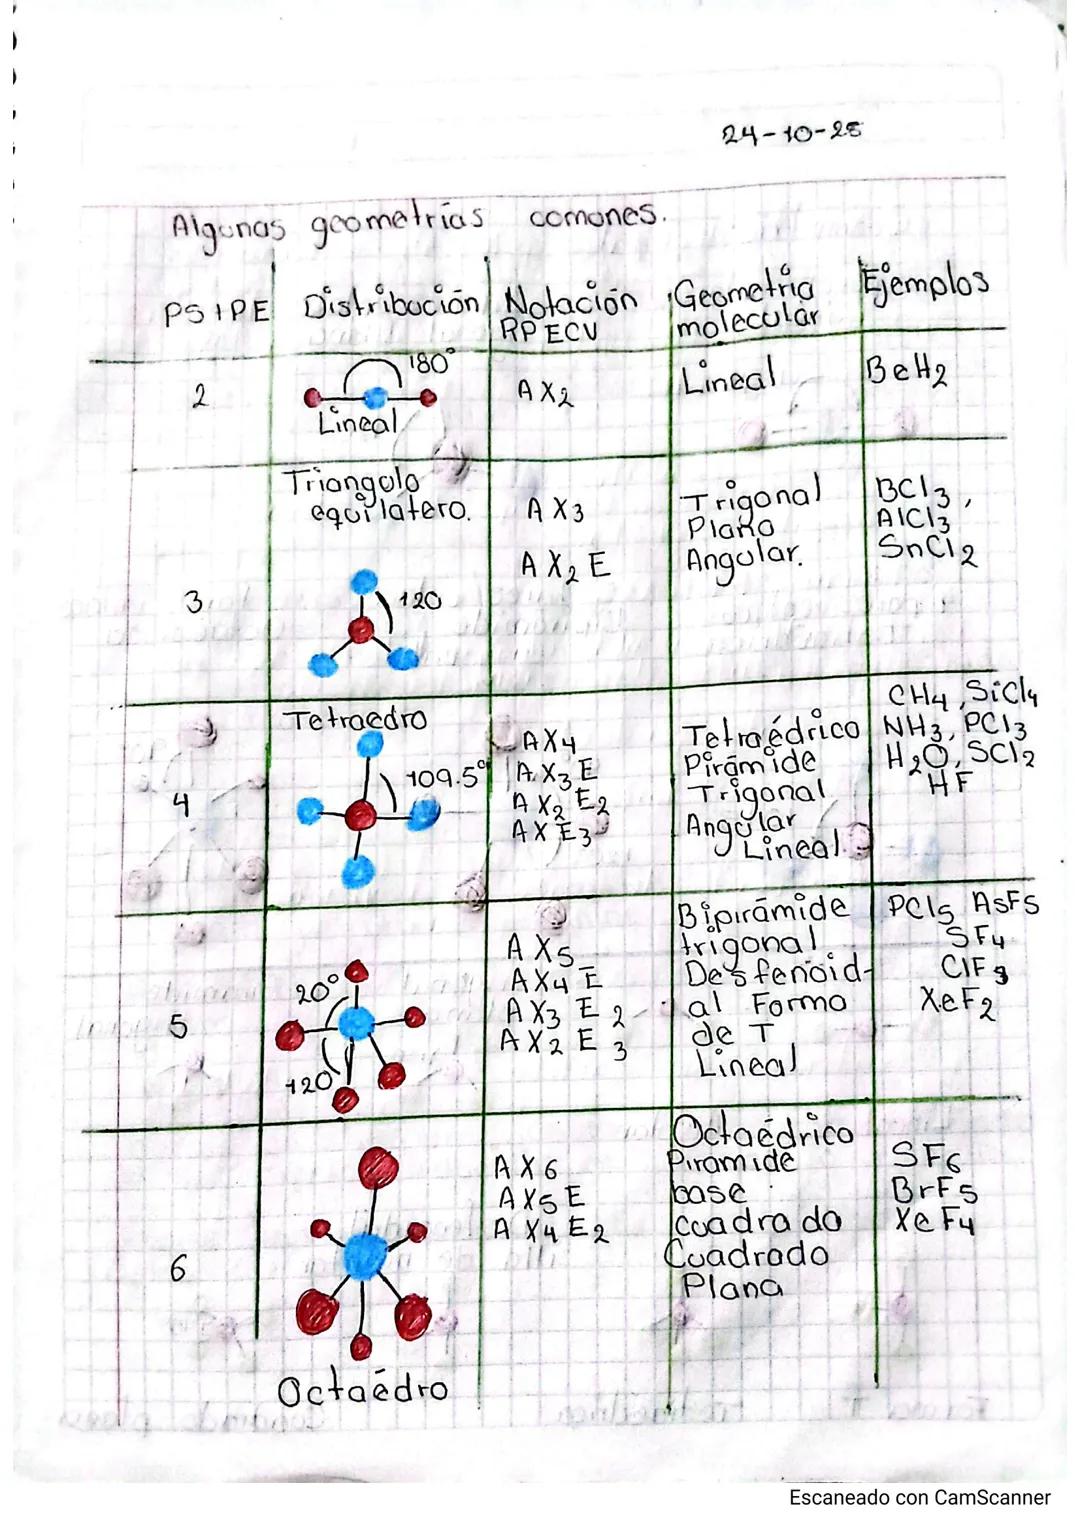 24-10-25
Algunas geometrías comunes.
PS+PE
Distribución
Notación
RPECV
Geometria
molecular
Ejemplos
2
180°
Lineal
AX2
Lineal
BeH2
3
Triangulo
equilatero.
120
AX3
AX2E
Trigonal
Plano
Angular.
BCl3,
AlCl3
SnCl2
4
Tetraedro
109.5°
AX4
AX3E
AX2E2
AXE3
Tetraédrico
Pirámide
Trigonal
Angular
Lineal
CH4, SiCl4
NH3, PCl3
H2O, SCl2
HF
5
20°
120
AX5
AX4E
AX3E2
AX2E3
Bipirámide
trigonal
Desfenoid-
al Forma
de T
Lineal
PCl5 AsF5
SF4
ClF3
XeF2
6
Octaédro
AX6
AX5E
AX4E2
Octaédrico
Piramide
base
cuadrado
Cuadrado
Plana
SF6
BrF5
XeF4
Escaneado con CamScanner